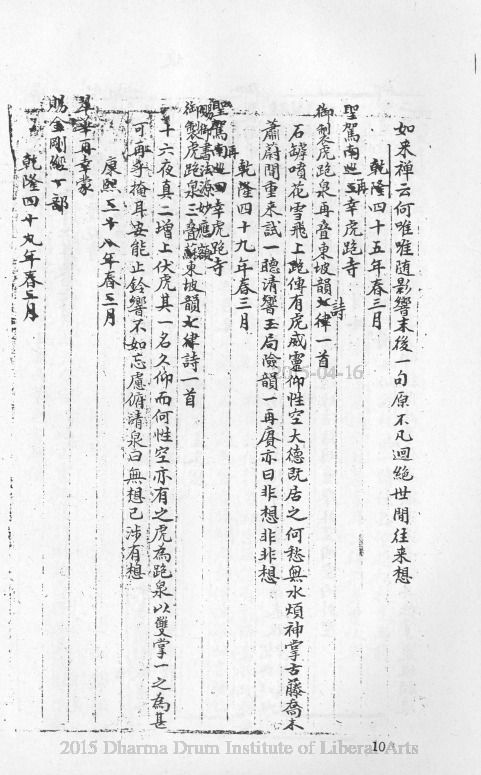 如来禅云何唯唯随影響末後一句原不凡迴絶世間往来想
乾隆四十五年春三月
聖駕南巡再幸虎跑寺
御製虎跑泉再叠東坡韻七律詩一首
石罅噴花雪飛上跑傳有虎威靈仰性空大德既居之何愁無水煩神掌古藤喬木
蕭蔚間重来試一聽清響玉局險韻一再賡亦曰非想非非想
乾隆四十九年春三月
聖駕南巡再幸虎跑寺
賜御書法源妙應額
御製虎跑泉三叠蘇東坡韻七律詩一首
十六夜真二增上伏虎其一名久仰而何性空亦有之虎為跑泉以雙掌一之為甚
可再乎掩耳安能止鈴響不如忘慮俯清泉曰無想已涉有想
康熙三十八年春三月
翠華再幸蒙
賜金剛經一部
乾隆四十九年春三月
10
2015-04-16
2015 Dharma Drum Institute of Liberal Arts